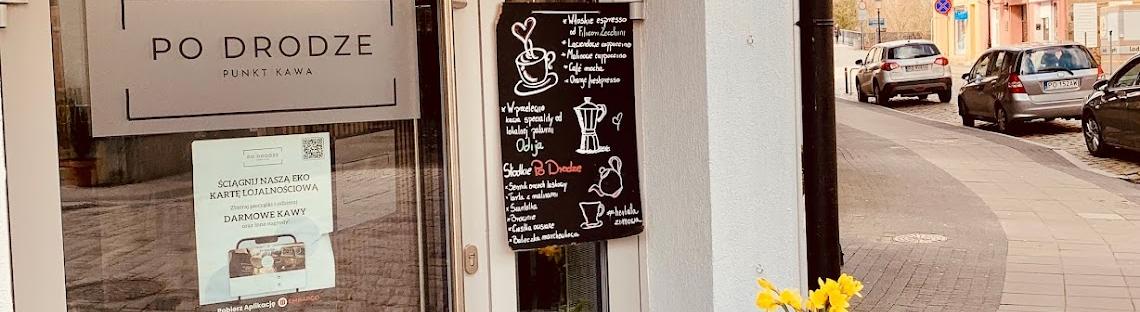 PO DRODZE
PUNKT KAWA
PO DRODZE
ŚCIĄGNIJ NASZĄ EKO
KARTĘ LOJALNOŚCIOWĄ
Zbieraj pieczątki i odbieraj
DARMOWE KAWY
oraz inne nagrody!
Pobierz Aplikację EMBARGO
* Włoskie espresso
od Filicori Zecchini
* Lawendowe cappuccino
* Malinowe cappuccino
* Café mocha
* Orange freshpresso
* W przelewie
kawa speciality od
lokalnej palarni
Odija
Słodkie Po Drodze
* Sernik orzech laskowy
* Tarta z malinami
* Szarlotka
* Brownie
* Ciastka owsiane
* Babeczka marchewkowa
herbata
zimowa
PO 152AK